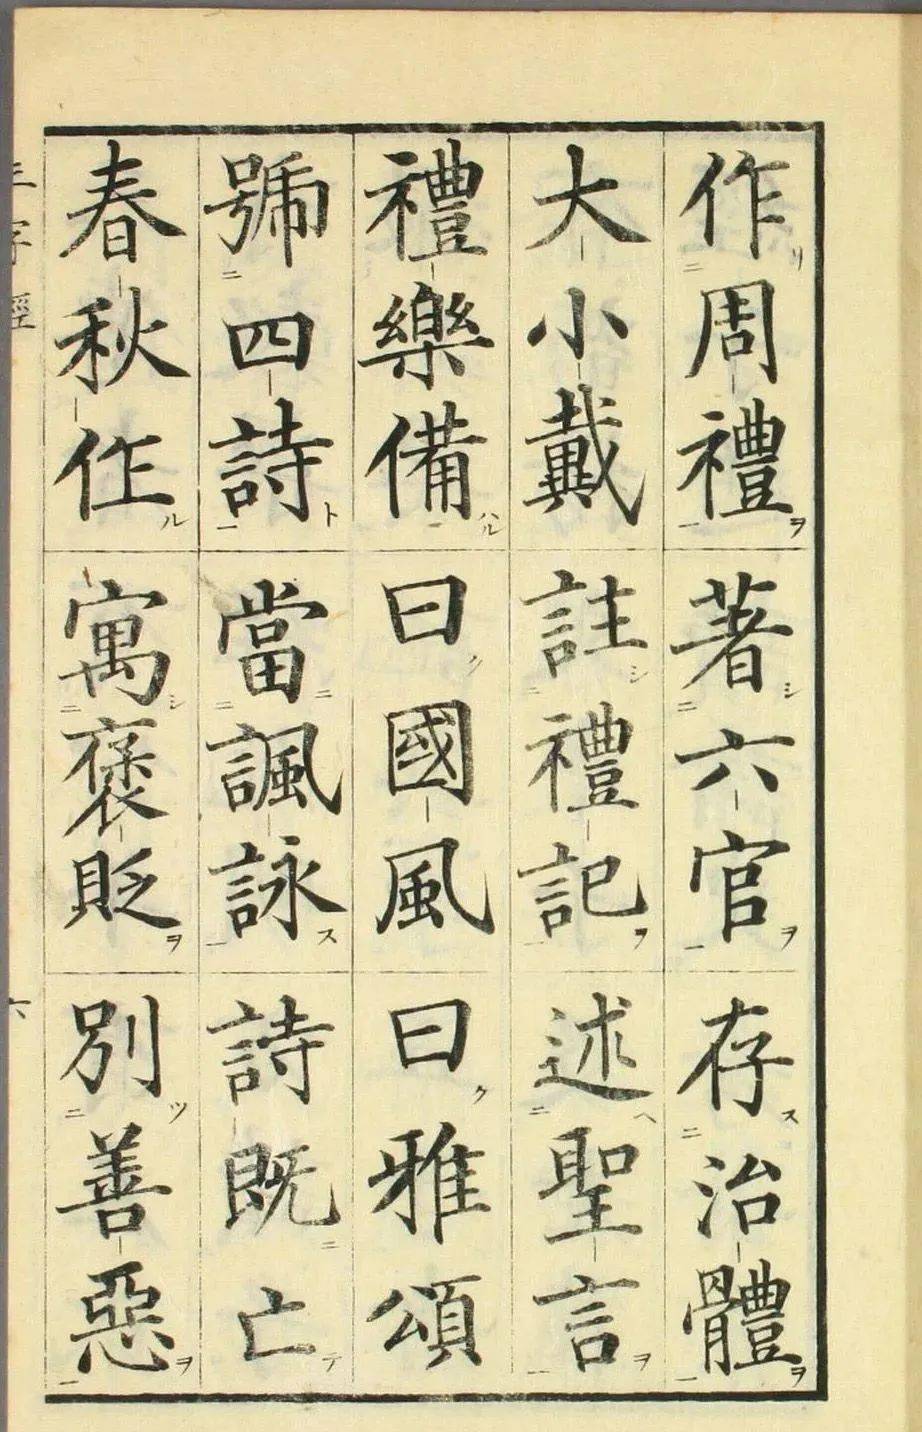 作周禮著六官存治體
大小戴註禮記述聖言
禮樂備曰國風曰雅頌
號四詩當諷詠詩既亡
春秋作寓褒貶別善惡
三字經
六